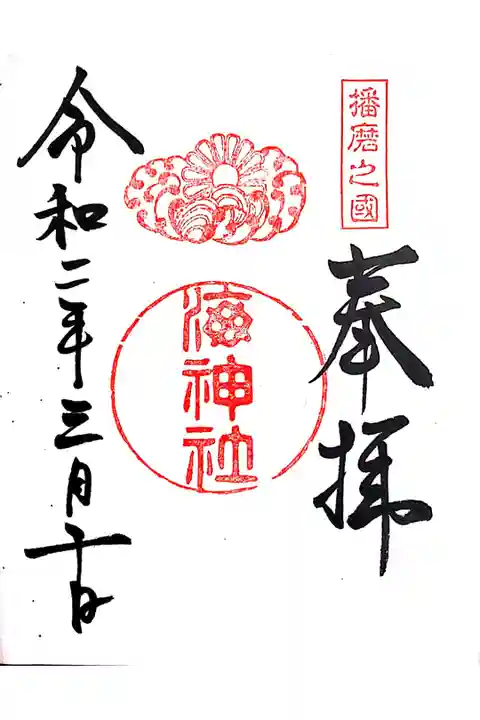 播磨之國
奉拝
海神社
令和二年三月二十日